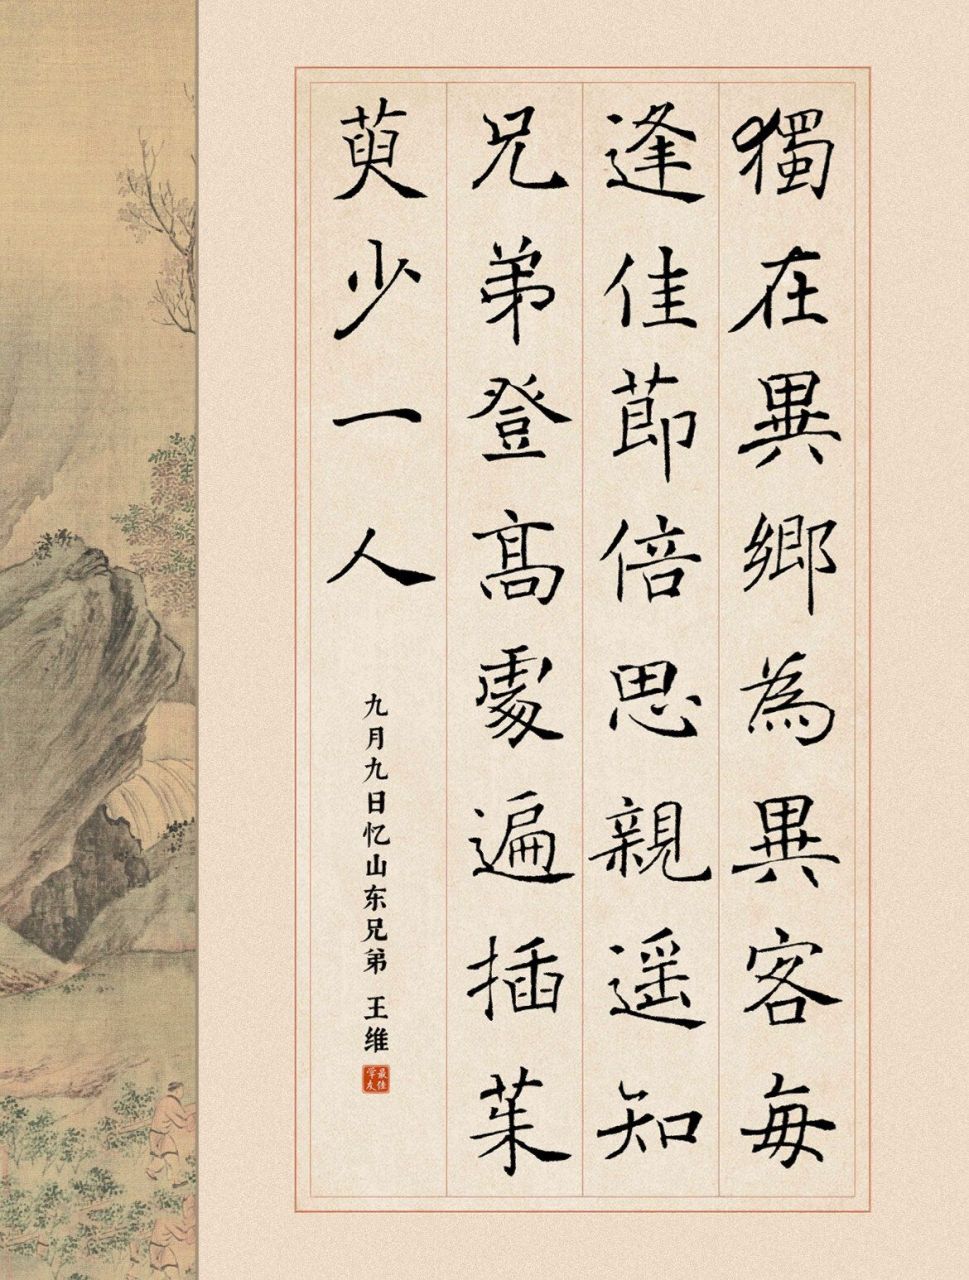 獨在異鄉為異客每
逢佳節倍思親遥知
兄弟登高處遍插茱
萸少一人
九月九日忆山东兄弟 王维
最佳
学友